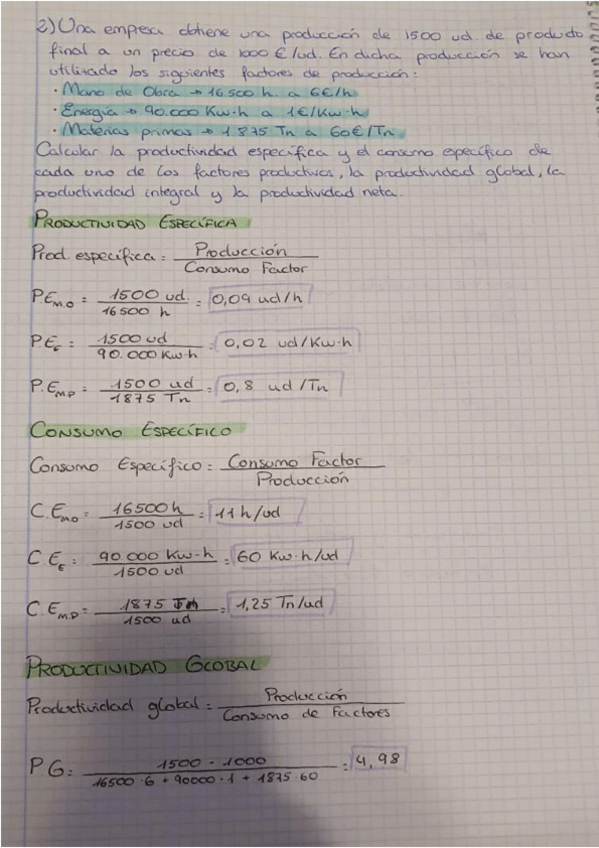 2) Una empresa obtiene una producción de 1500 ud de producto
final a un precio de 1000 €/ud. En dicha producción se han
utilizado los siguientes factores de producción:
· Mano de Obra → 16500 h. a 6€/h
· Energía → 90.000 Kw·h a 1€/Kw·h
· Materias primas → 1875 Tn a 60€/Tn
Calcular la productividad específica y el consumo específico de
cada uno de los factores productivos, la productividad global, la
productividad integral y la productividad neta.
PRODUCTIVIDAD ESPECÍFICA
Prod. específica = Producción / Consumo Factor
P.E M.O = 1500 ud. / 16500 h = 0,09 ud/h
P.E E = 1500 ud / 90.000 Kw·h = 0,02 ud/Kw·h
P.E MP = 1500 ud / 1875 Tn = 0,8 ud/Tn
CONSUMO ESPECÍFICO
Consumo Específico = Consumo Factor / Producción
C.E MO = 16500 h / 1500 ud = 11 h/ud
C.E E = 90.000 Kw-h / 1500 ud = 60 Kw·h/ud
C.E M.P = 1875 Tn / 1500 ud = 1,25 Tn/ud
PRODUCTIVIDAD GLOBAL
Productividad global = Producción / Consumo de Factores
PG = 1500 · 1000 / 16500 · 6 + 90000 · 1 + 1875 · 60 = 4,98